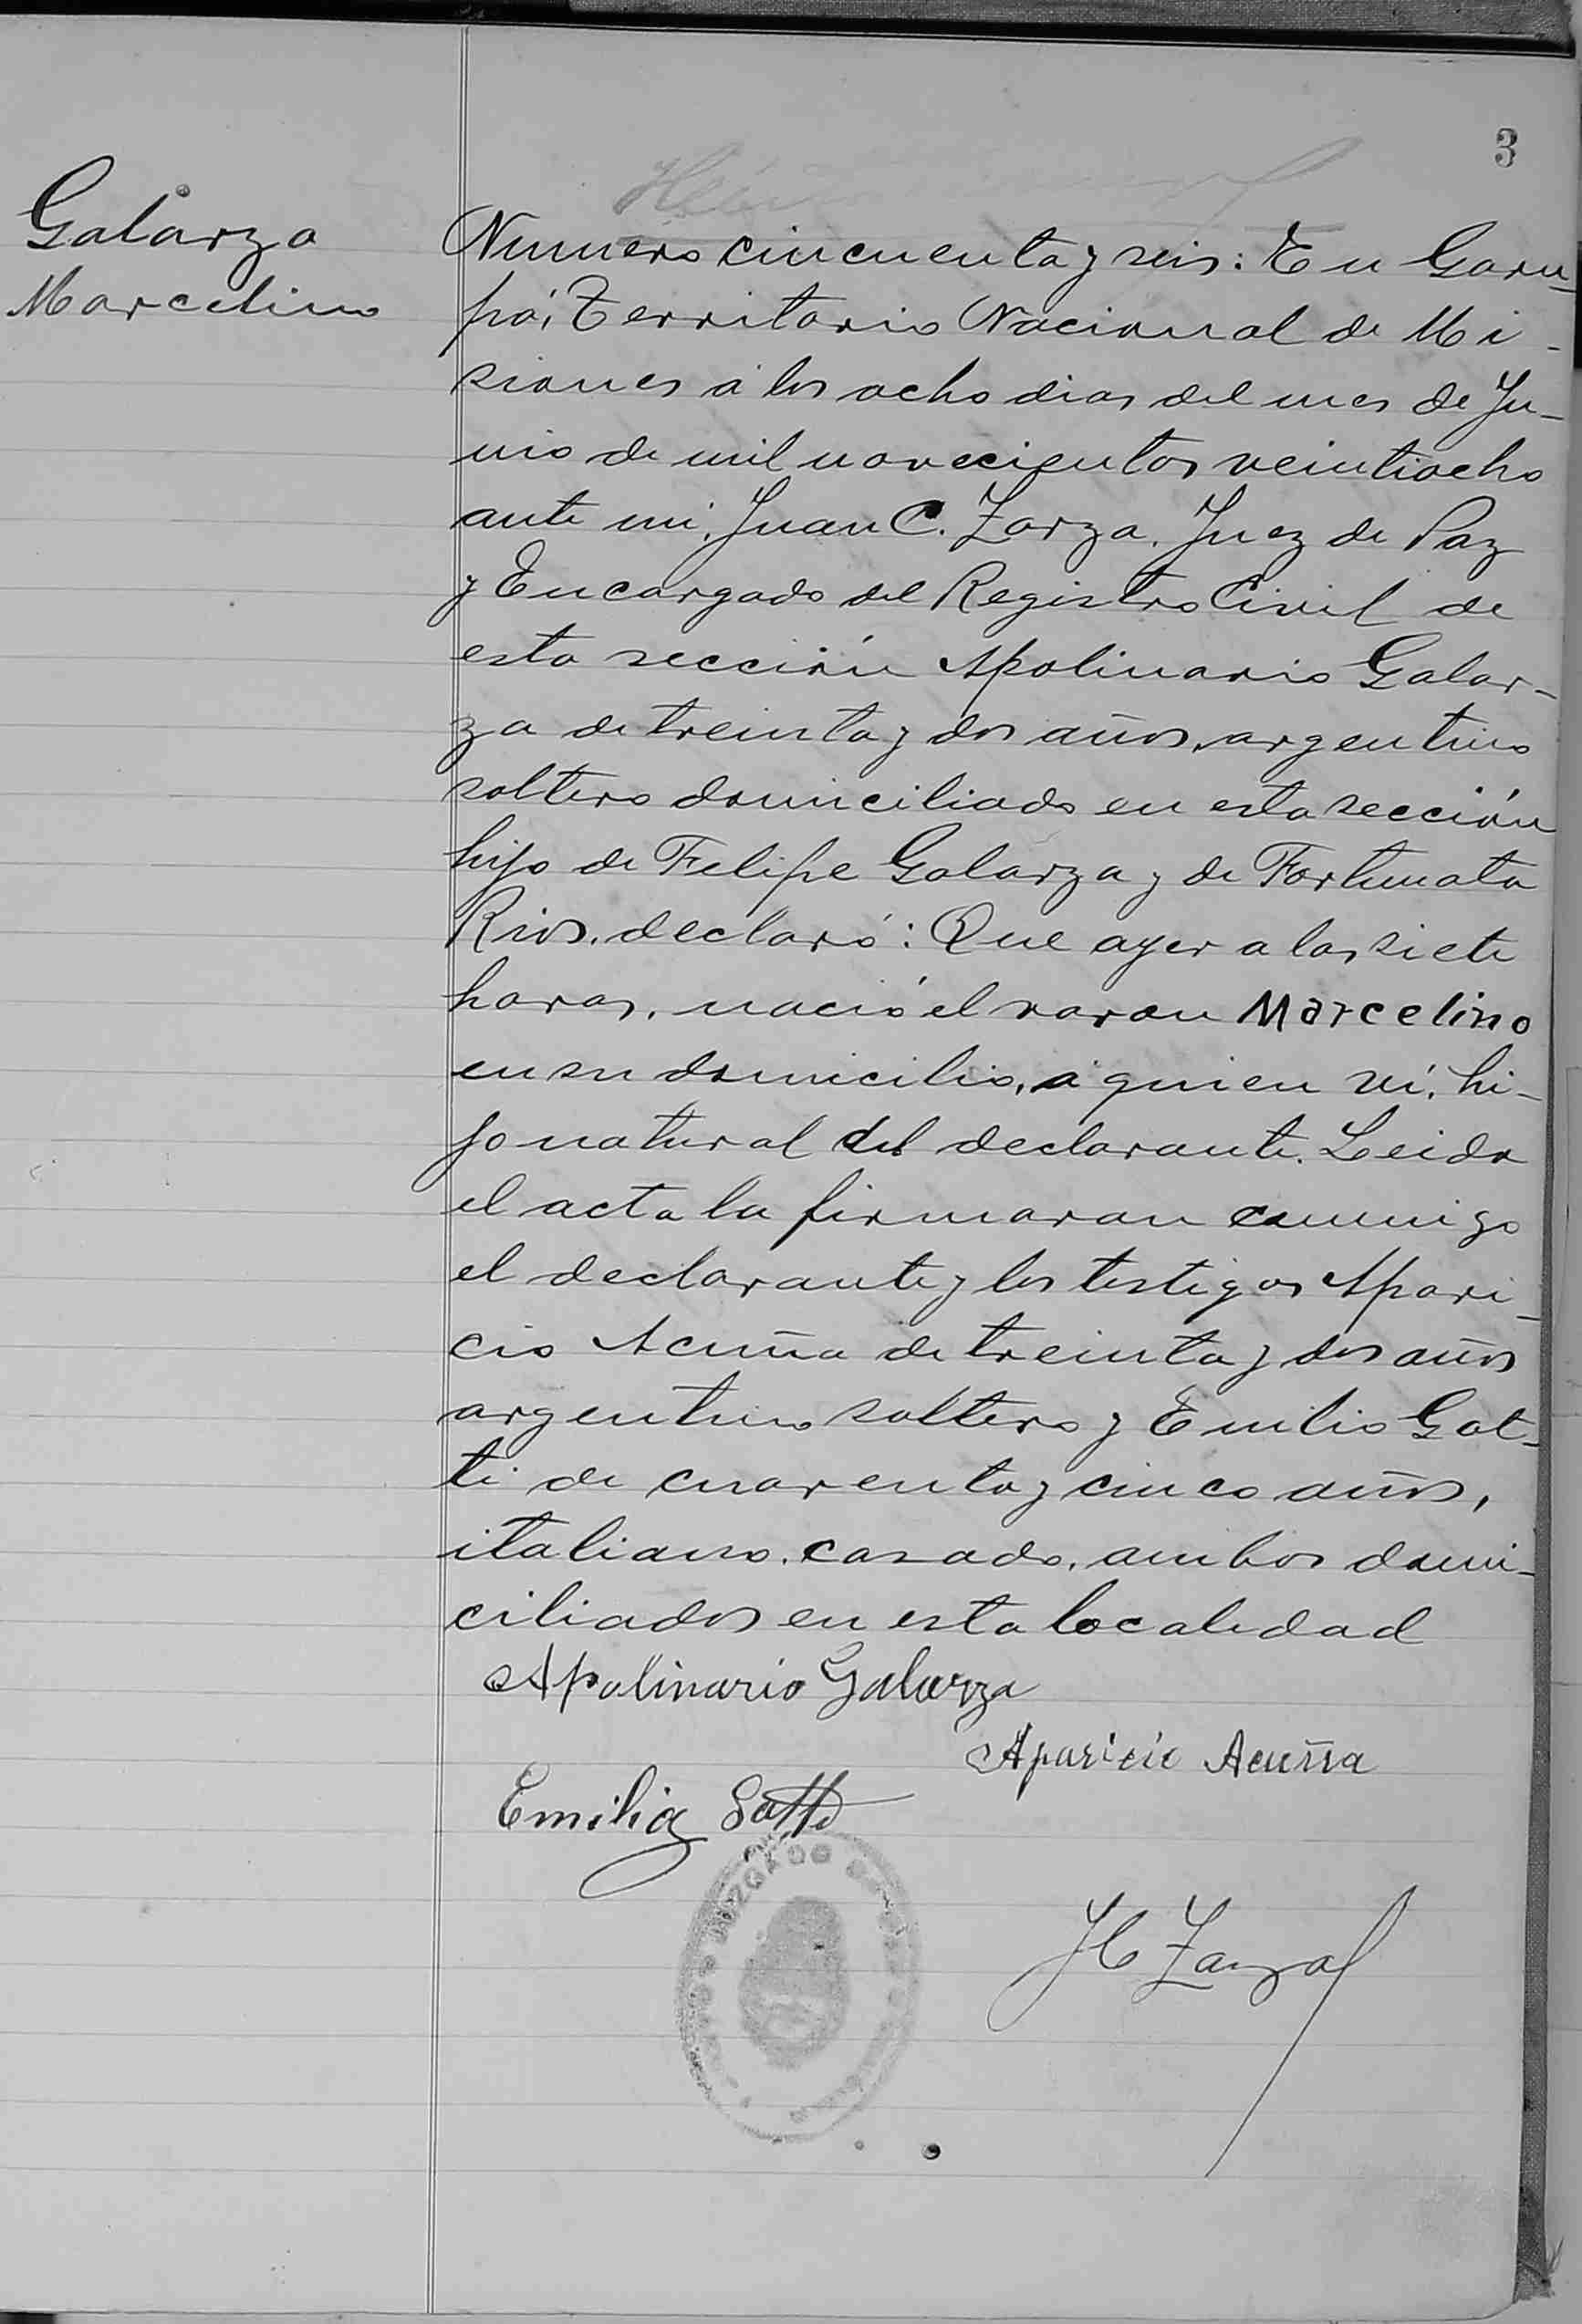 3
Galarza
Marcelino
Numero cincuenta y seis: En Garu-
pá, Territorio Nacional de Mi-
siones á los ocho dias del mes de Ju-
nio de mil novecientos veintiocho
ante mi, Juan C. Zarza, Juez de Paz
y Encargado del Registro Civil de
esta sección Apolinario Galar-
za de treinta y dos años, argentino
soltero domiciliado en esta sección
hijo de Felipe Galarza y de Fortunata
Rios, declaró: Que ayer a las siete
horas, nació el varon Marcelino
en su domicilio, á quien ví, hi-
jo natural del declarante. Leida
el acta la firmaron conmigo
el declarante y los testigos Apari-
cio Acuña de treinta y dos años
argentino soltero y Emilio Gat-
ti de cuarenta y cinco años,
italiano, casado, ambos domi-
ciliados en esta localidad
Apolinario Galarza
Aparicio Acuña
Emilio Gatti
JUZGADO
JC Zarza